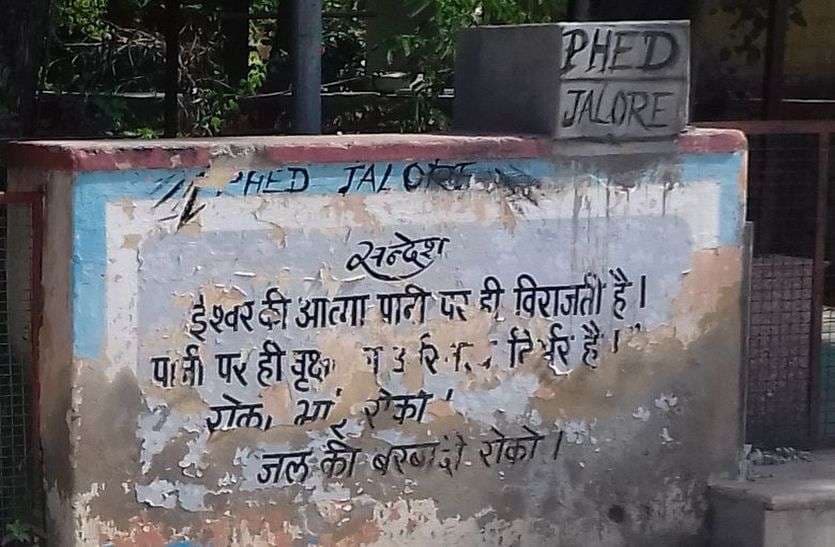 PHED
JALORE
PHED JALORE
सन्देश
ईश्वर की आत्मा पानी पर ही विराजती है।
पानी पर ही वृक्ष निर्भर है।"
रोको, भाई रोको
जल की बरबादी रोको।